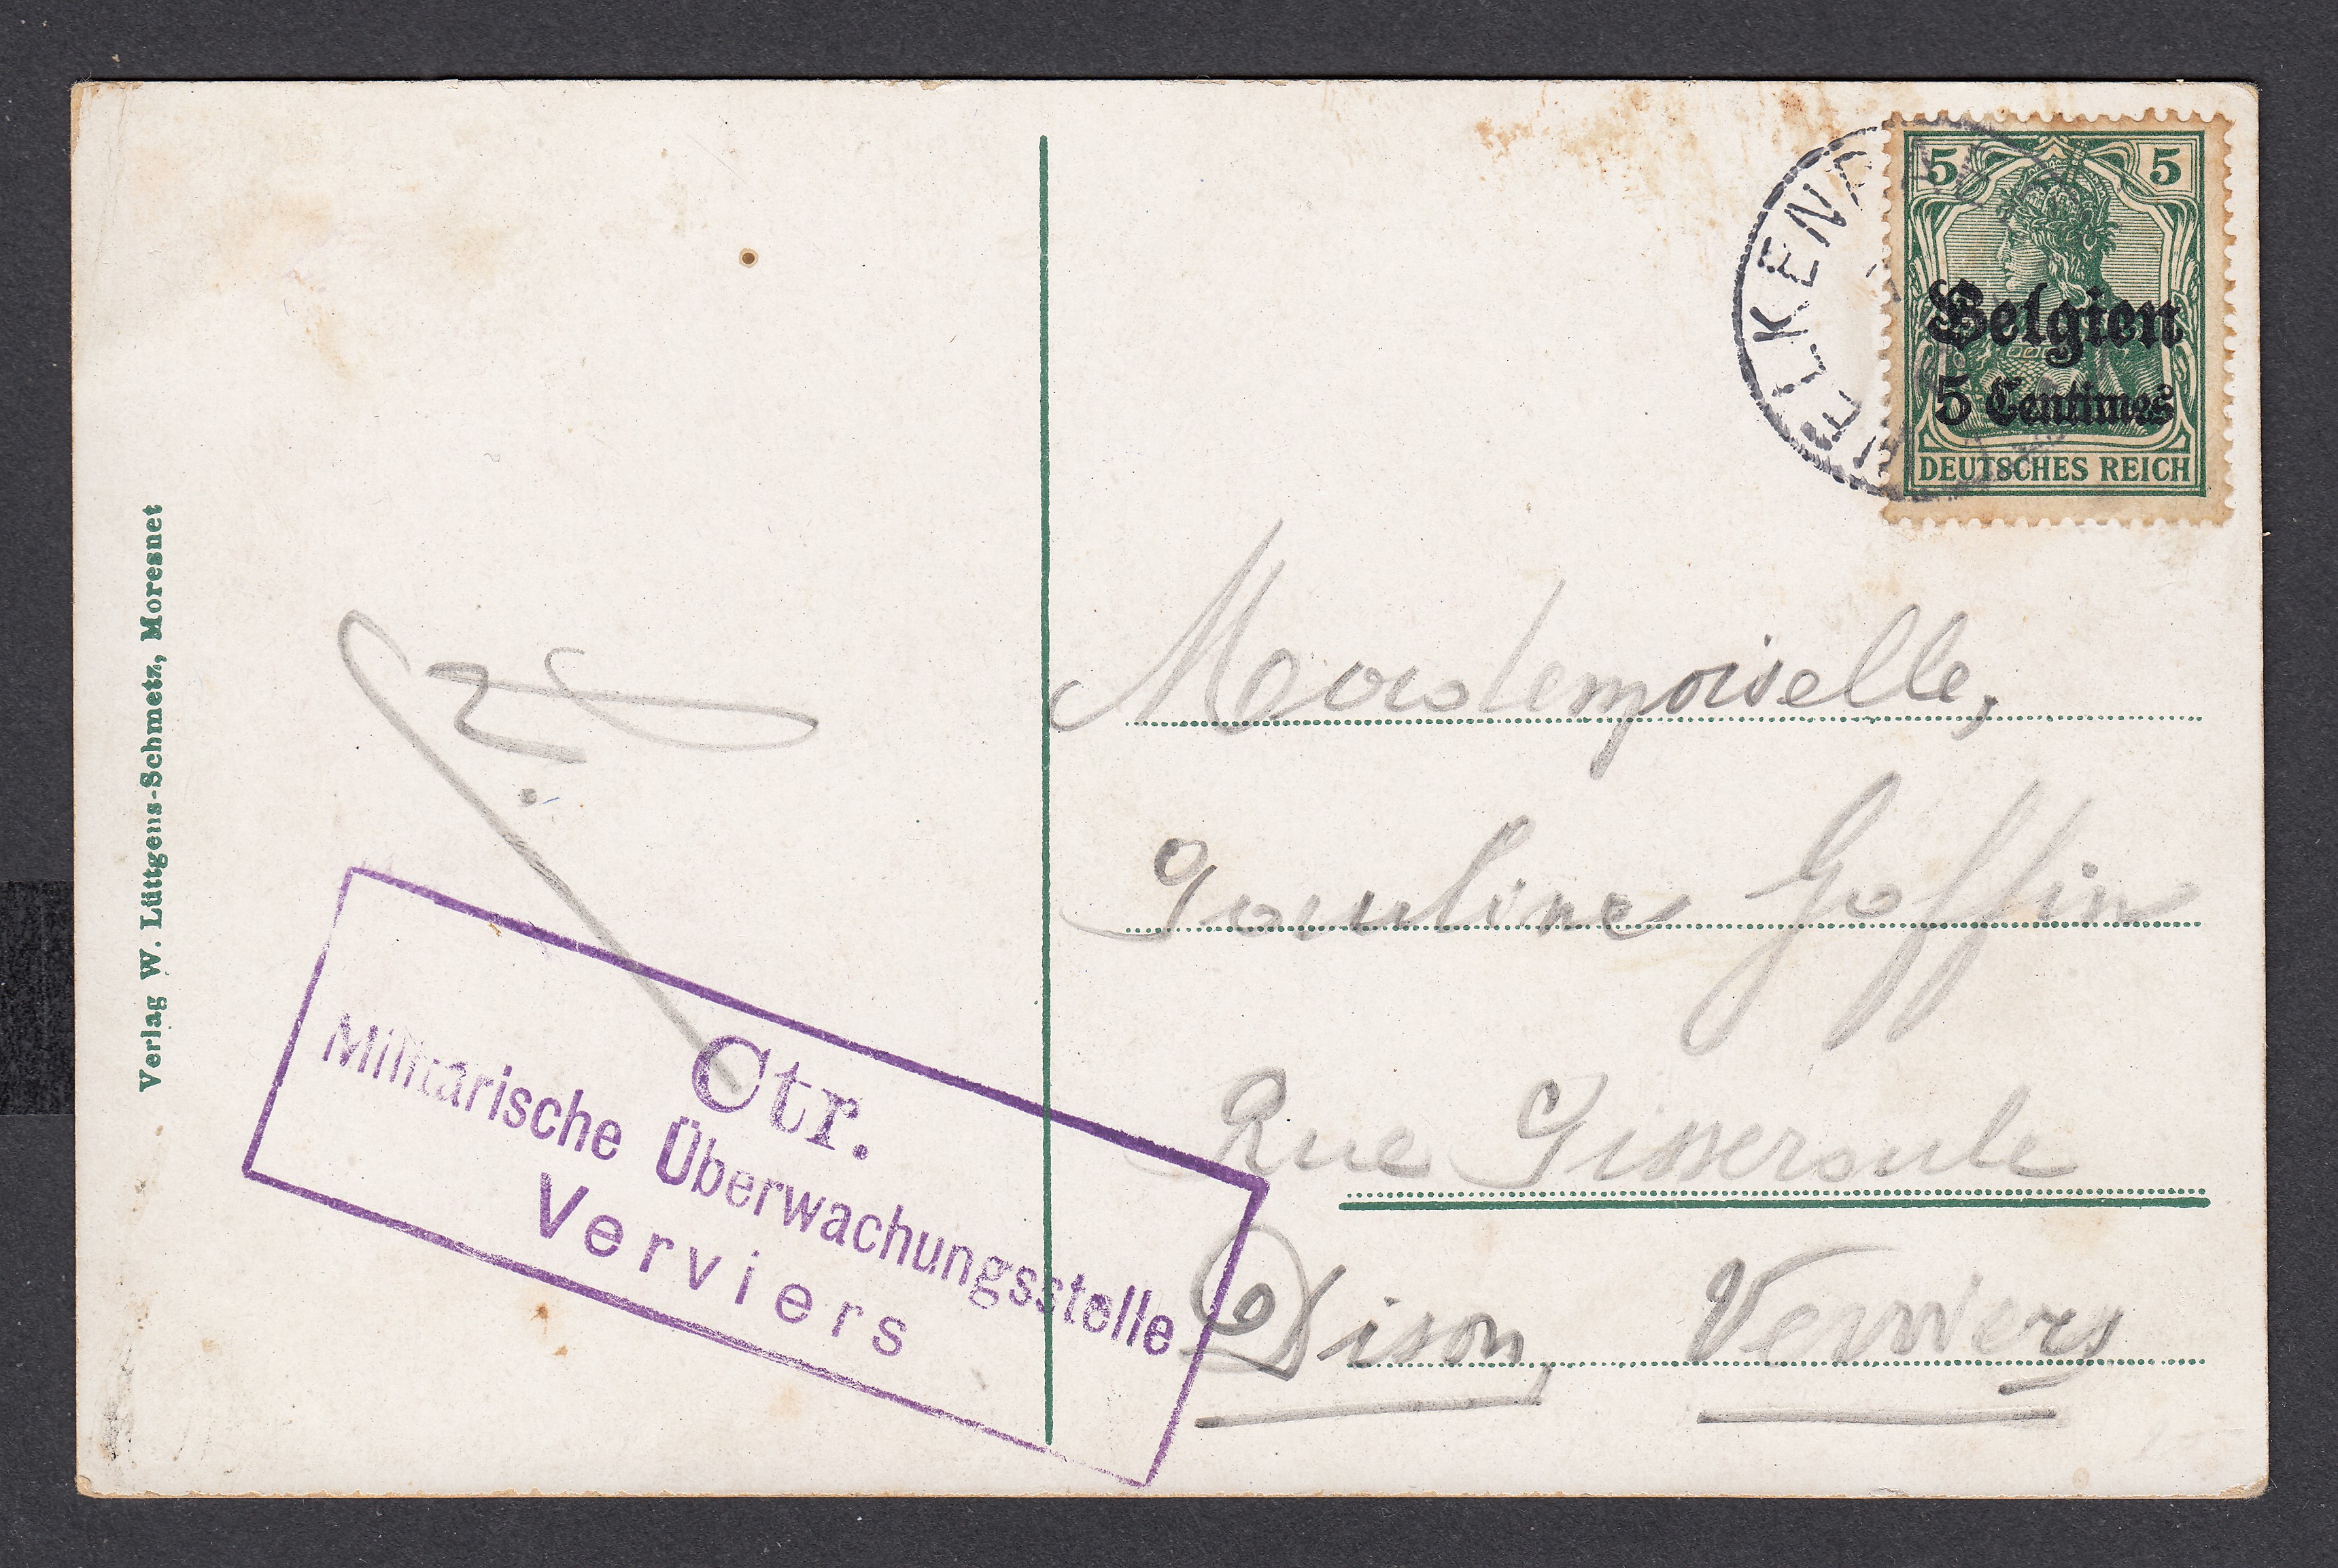 Verlag W. Lüttgens-Schmetz, Moresnet
5 5
Belgien
5 Centimes
DEUTSCHES REICH
Mademoiselle,
Pauline Goffin
Rue
Dison, Verviers
Ctr.
Militärische Überwachungsstelle
Verviers